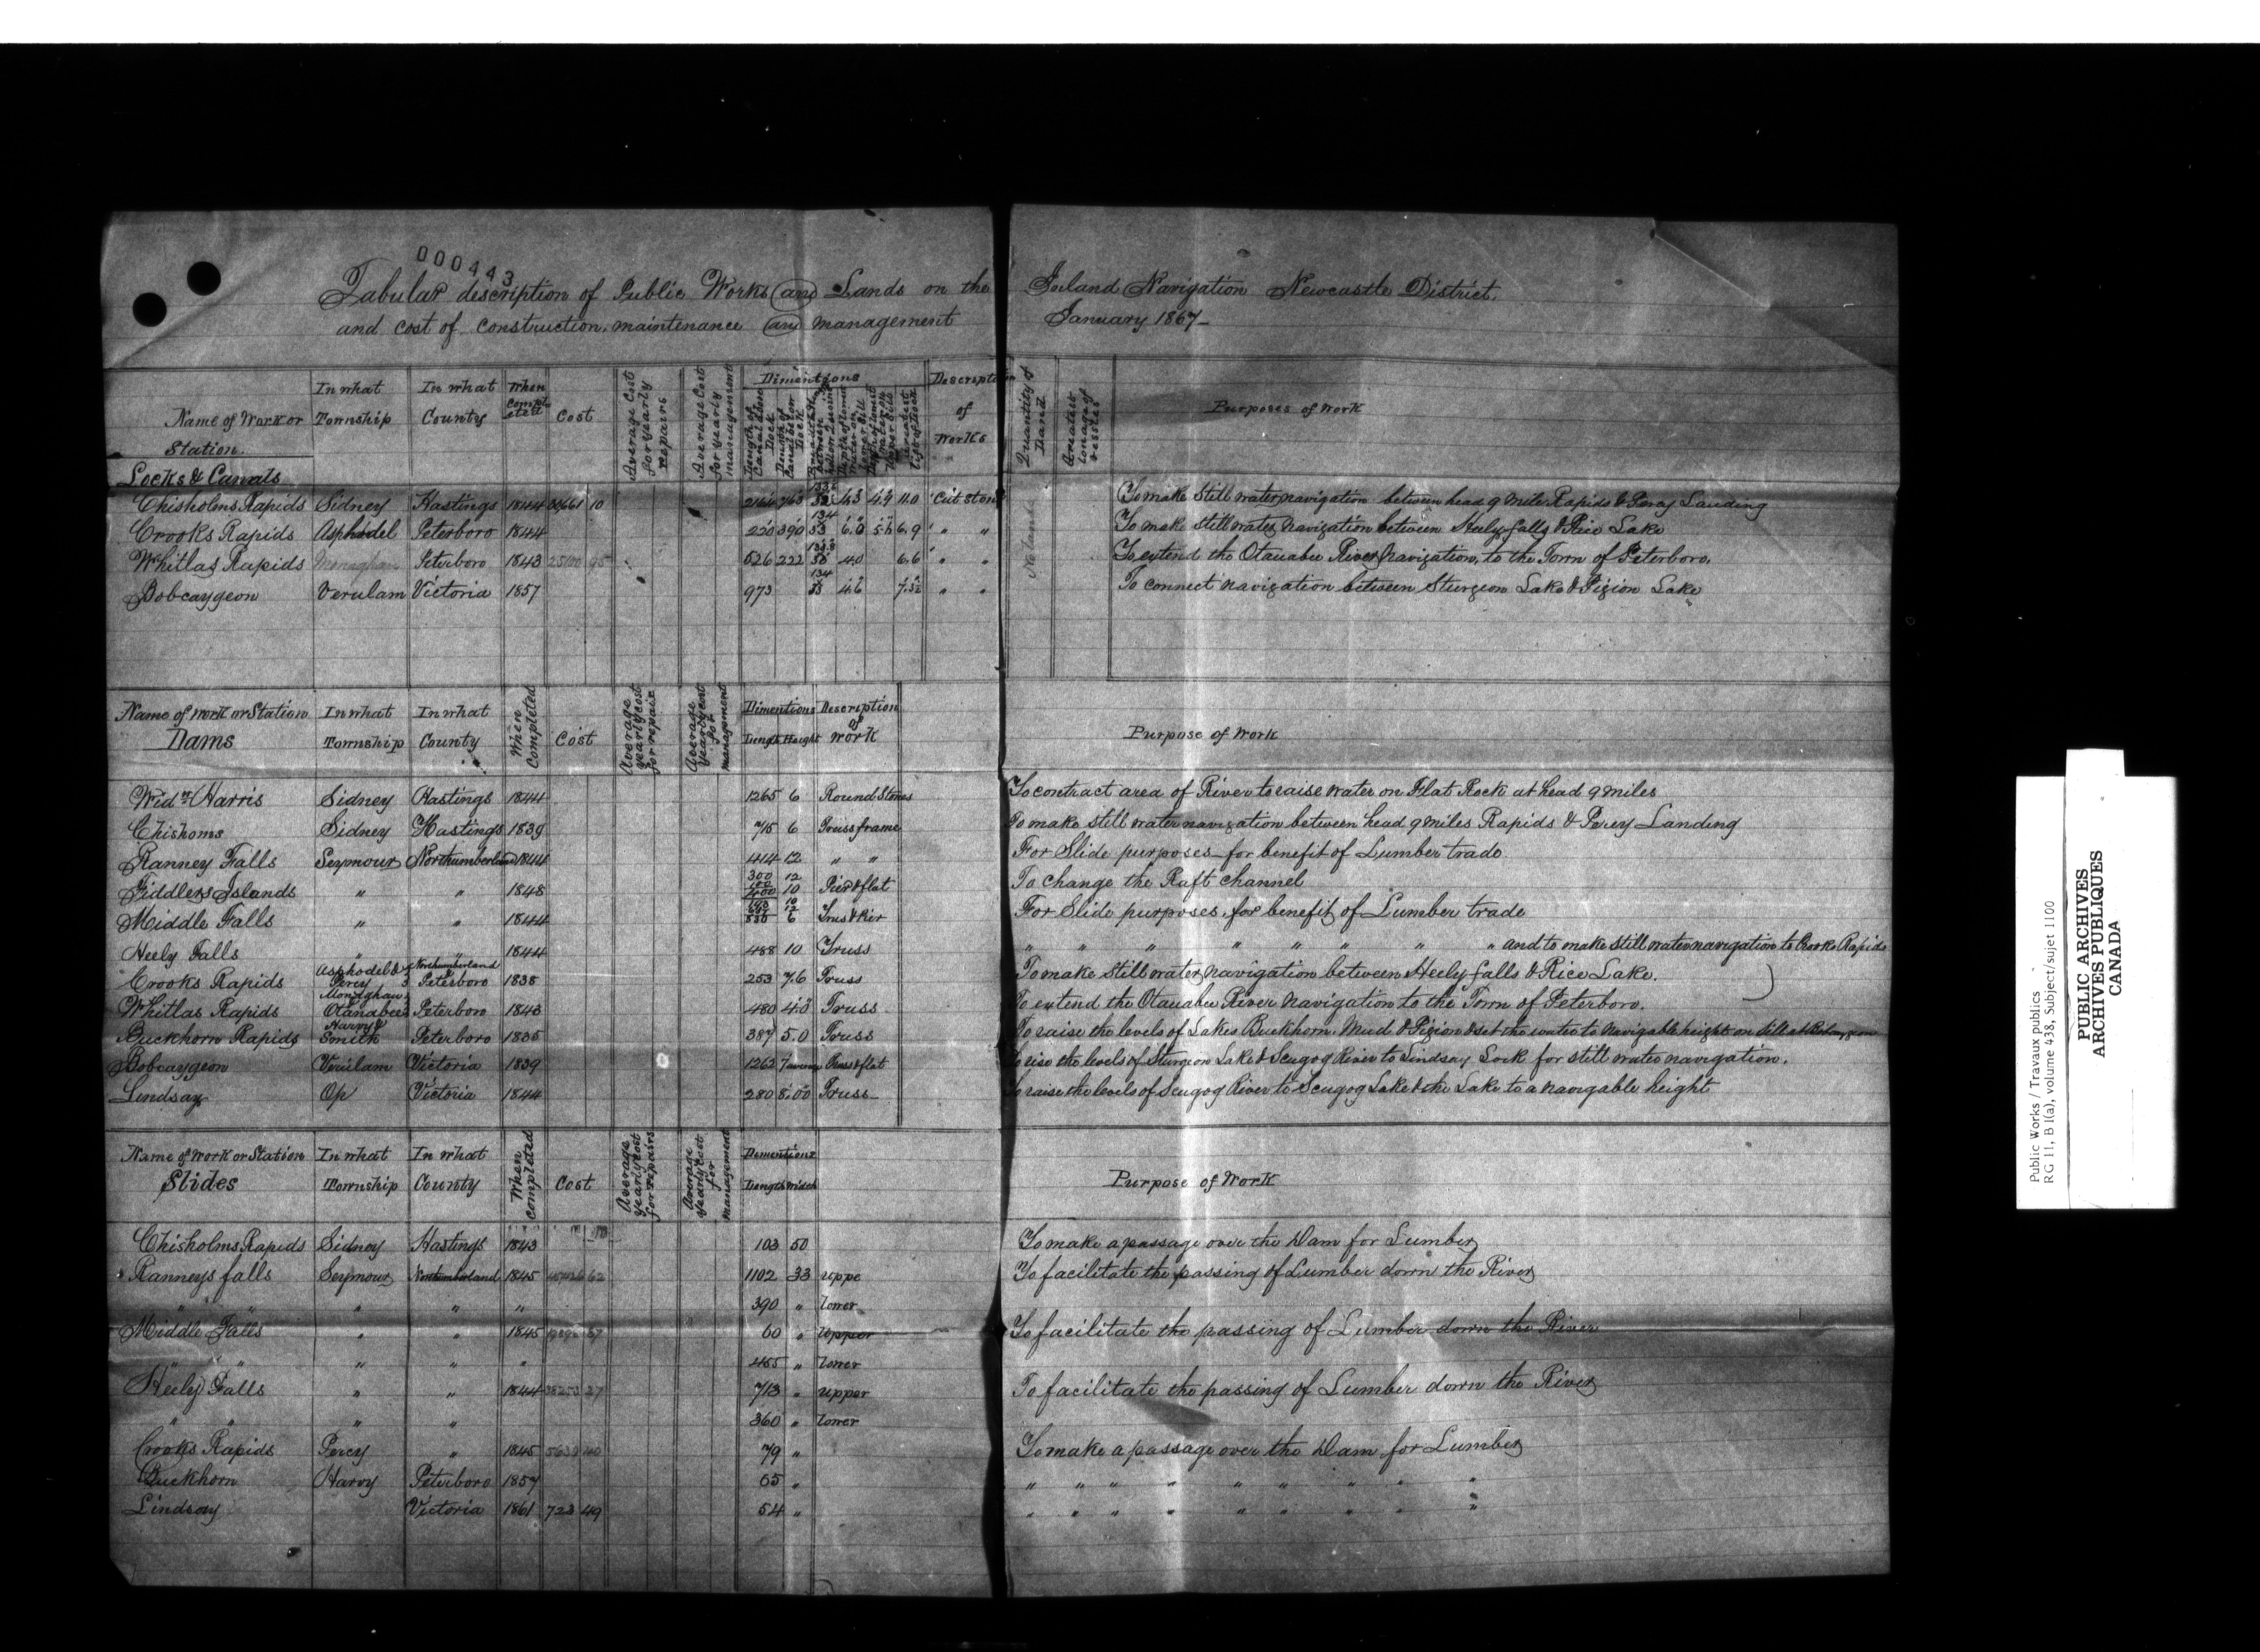 000443
Tabular description of Public Works and Lands on the Inland Navigation Newcastle District.
and cost of construction, maintenance and management January 1867-
Name of Work or Station. In what Township In what County When Completed Cost Average Cost for yearly repairs Average Cost for yearly management Dimentions Description of Works Quantity of Land Greatest tonage of vessles Purposes of Work
Locks & Canals
Chisholms Rapids Sidney Hastings 1844 10 11.0 Cut Stone To make still water navigation between head 9 mile Rapids & Percy Landing
Crooks Rapids Asphodel Peterboro 1844 220 390 6.9 " " To make still water navigation between Heely falls & Rice Lake
Whitlas Rapids Monaghan Peterboro 1843 25100 95 526 222 4.0 6.6 " " To extend the Otanabee River Navigation, to the Town of Peterboro.
Bobcaygeon Verulam Victoria 1857 973 4.6 " " To connect navigation between Sturgeon Lake & Pigion Lake
Name of Work or Station Dams In what Township In what County When Completed Cost Average yearly cost for repair Average yearly cost for management Dimentions Length Height Description of work Purpose of Work
Widw Harris Sidney Hastings 1844 1265 6 Round Stones To contract area of River to raise water on Flat Rock at head 9 miles
Chishoms Sidney Hastings 1839 715 6 Truss frame To make still water navigation between head 9 miles Rapids & Percy Landing
Ranney Falls Seymour Northumberland 1844 414 12 " " For Slide purposes for benefit of Lumber trade
Fiddlers Islands " " 1848 300 12 10 Pier & flat To change the Raft channel
Middle Falls " " 1844 6 For Slide purposes for benefit of Lumber trade
Heely Falls " " 1844 488 10 Truss " " " " " " " " and to make still water navigation to Crooks Rapids
Crooks Rapids Asphodel & Percy Northumberland Peterboro 1838 253 7.6 Truss To make still water navigation between Heely falls & Rice Lake.
Whitlas Rapids Monaghan Otanabee Peterboro 1843 480 4.3 Truss To extend the Otanabee River Navigation to the Town of Peterboro.
Buckhorn Rapids Harvy & Smith Peterboro 1835 387 5.0 Truss To raise the levels of Lakes Buckhorn, Mud & Pigion & set the water to navigable height on
Bobcaygeon Verulam Victoria 1839 1262 7 & flat To rise the levels of Sturgeon Lake & Scugog River to Lindsay Lock for still water navigation.
Lindsay Op Victoria 1844 280 8.00 Truss To raise the levels of Scugog River to Scugog Lake & the Lake to a navigable height
Name of Work or Station Slides In what Township In what County When completed Cost Average yearly cost for repairs Average yearly cost for management Dimentions Length Width Purpose of Work
Chisholms Rapids Sidney Hastings 1843 103 50 To make a passage over the Dam for Lumber
Ranneys falls Seymour Northumberland 1845 62 1102 33 uppe To facilitate the passing of Lumber down the River
" " " " " 390 " lower
Middle Falls " " 1845 60 " upper To facilitate the passing of Lumber down the River
" " " " " 455 " lower
Heely Falls " " 1844 38253 27 713 " upper To facilitate the passing of Lumber down the River
" " " " 360 " lower
Crooks Rapids Percy " 1845 79 " To make a passage over the Dam for Lumber
Buckhorn Harvy Peterboro 1857 65 " " " " " " " " " "
Lindsay Victoria 1861 723 49 54 " " " " " " " " " "
Public Works / Travaux publics
RG 11, B 1(a), volume 438, Subject/sujet 1100
PUBLIC ARCHIVES
ARCHIVES PUBLIQUES
CANADA